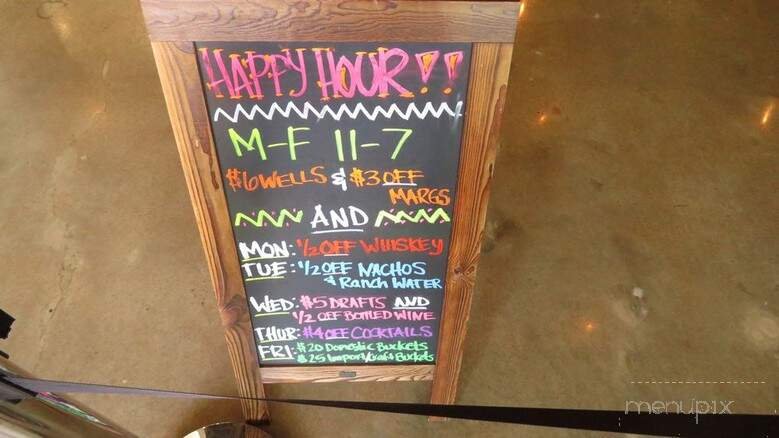 HAPPY HOUR!!
M-F 11-7
$6 WELLS & $3 OFF
MARGS
AND
MON: 1/2 OFF WHISKEY
TUE: 1/2 OFF NACHOS
& Ranch WATER
WED: $5 DRAFTS AND
1/2 OFF BOTTLED WINE
THUR: $4 OFF COCKTAILS
FRI: $20 Domestic Buckets
$25 Import/Craft Buckets
menupix